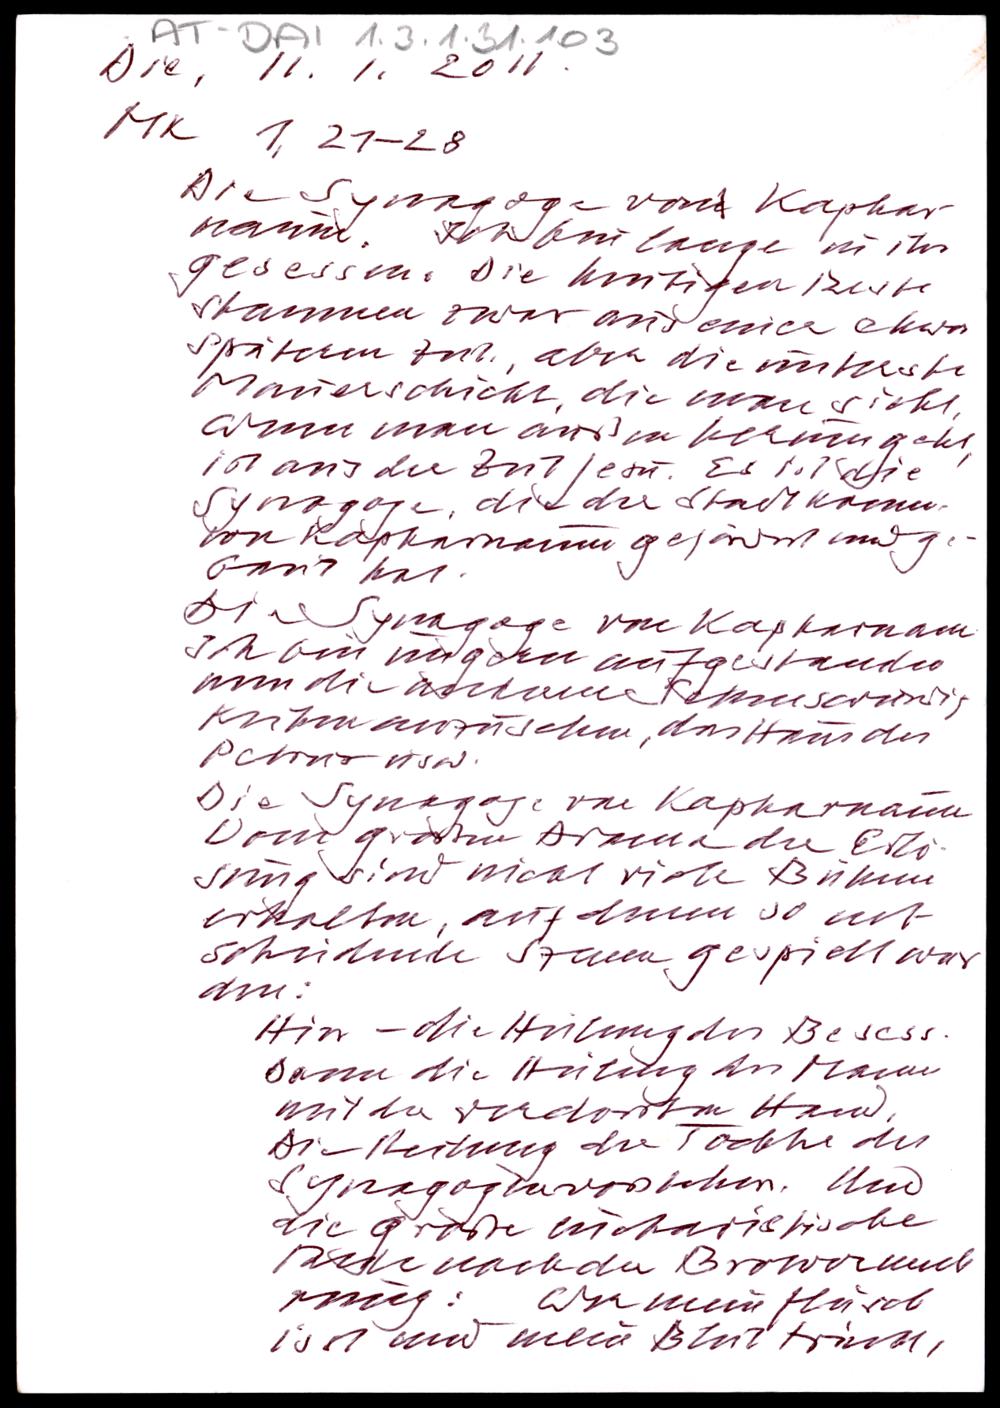 AT-DAI 1.3.1.31.103
Die, 11. 1. 2011.
Mk 1, 21-28
Die Synagoge von Kaphar-
naum. Ich bin lange in ihr
gesessen. Die heutigen Reste
stammen zwar aus einer etwas
späteren Zeit, aber die unterste
Mauerschicht, die man sieht,
wenn man außen herumgeht,
ist aus der Zeit Jesu. Es ist die
Synagoge, die der Stadtkomm.
von Kapharnaum gefördert und ge-
baut hat.
Die Synagoge von Kapharnaum
Ich bin ungern aufgestanden
um die anderen Sehenswürdig
keiten anzuschauen, das Haus des
Petrus usw.
Die Synagoge von Kapharnaum
Vom großen Drama der Erlö-
sung sind nicht viele Bühnen
erhalten, auf denen so ent-
scheidende Szenen gespielt wur
den:
Hier - die Heilung des Besess.
Dann die Heilung des Mannes
mit der verdorrten Hand,
Die Heilung der Tochter des
Synagogenvorstehers. Und
die große eucharistische
Rede nach der Brotvermeh
rung: Wer mein Fleisch
isst und mein Blut trinkt,